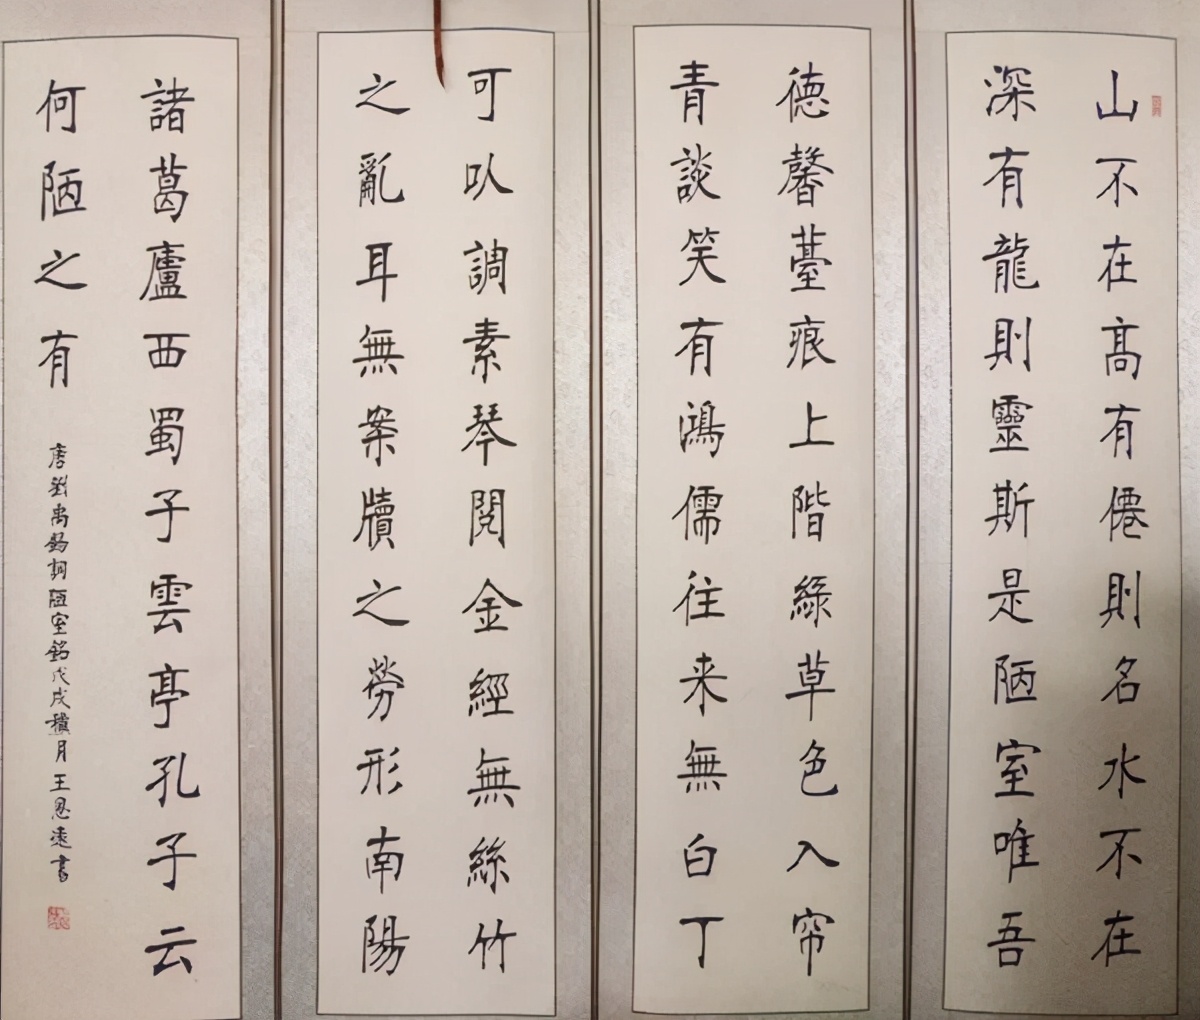 山不在高有僊則名水不在
深有龍則靈斯是陋室唯吾
德馨薹痕上階綠草色入帘
青談笑有鴻儒往来無白丁
可以調素琴閱金經無絲竹
之亂耳無案牘之勞形南陽
諸葛廬西蜀子雲亭孔子云
何陋之有
唐劉禹錫詞陋室銘戊戌穐月王恩遠書